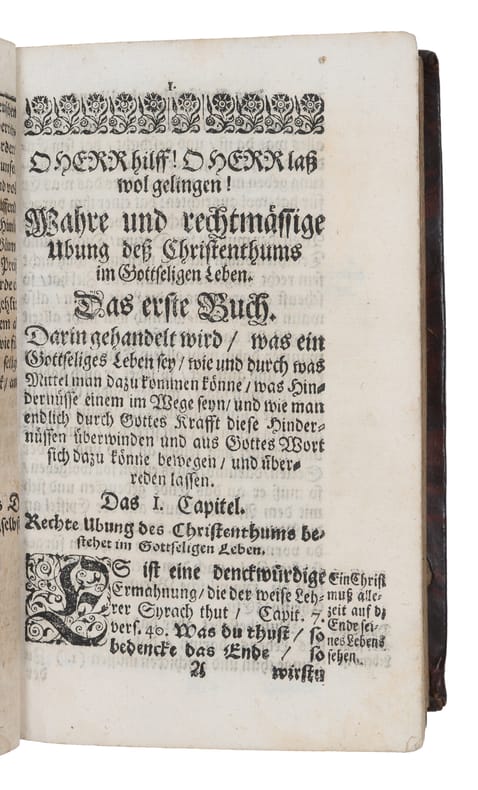 1.
O HERR hilff! O HERR laß
wol gelingen!
Wahre und rechtmässige
Ubung deß Christenthums
im Gottseligen Leben.
Das erste Buch.
Darin gehandelt wird / was ein
Gottseliges Leben sey / wie und durch was
Mittel man dazu kommen könne / was Hin-
dernüsse einem im Wege seyn / und wie man
endlich durch Gottes Krafft diese Hinder-
nüssen überwinden und aus Gottes Wort
sich dazu könne bewegen / und über-
reden lassen.
Das I. Capitel.
Rechte Ubung des Christenthums be-
stehet im Gottseligen Leben.
ES ist eine denckwürdige
Ermahnung / die der weise Leh-
rer Syrach thut / Capit. 7.
vers. 40. Was du thust / so
bedencke das Ende / so
Ein Christ
muß alle-
zeit auf dz
Ende sei-
nes Lebens
sehen.
A wirstu